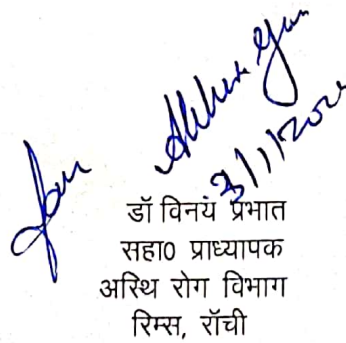 3/1/202
डॉ विनय प्रभात
सहा0 प्राध्यापक
अस्थि रोग विभाग
रिम्स, रॉची